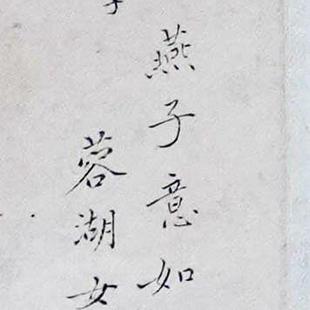 燕子意如
蓉湖女